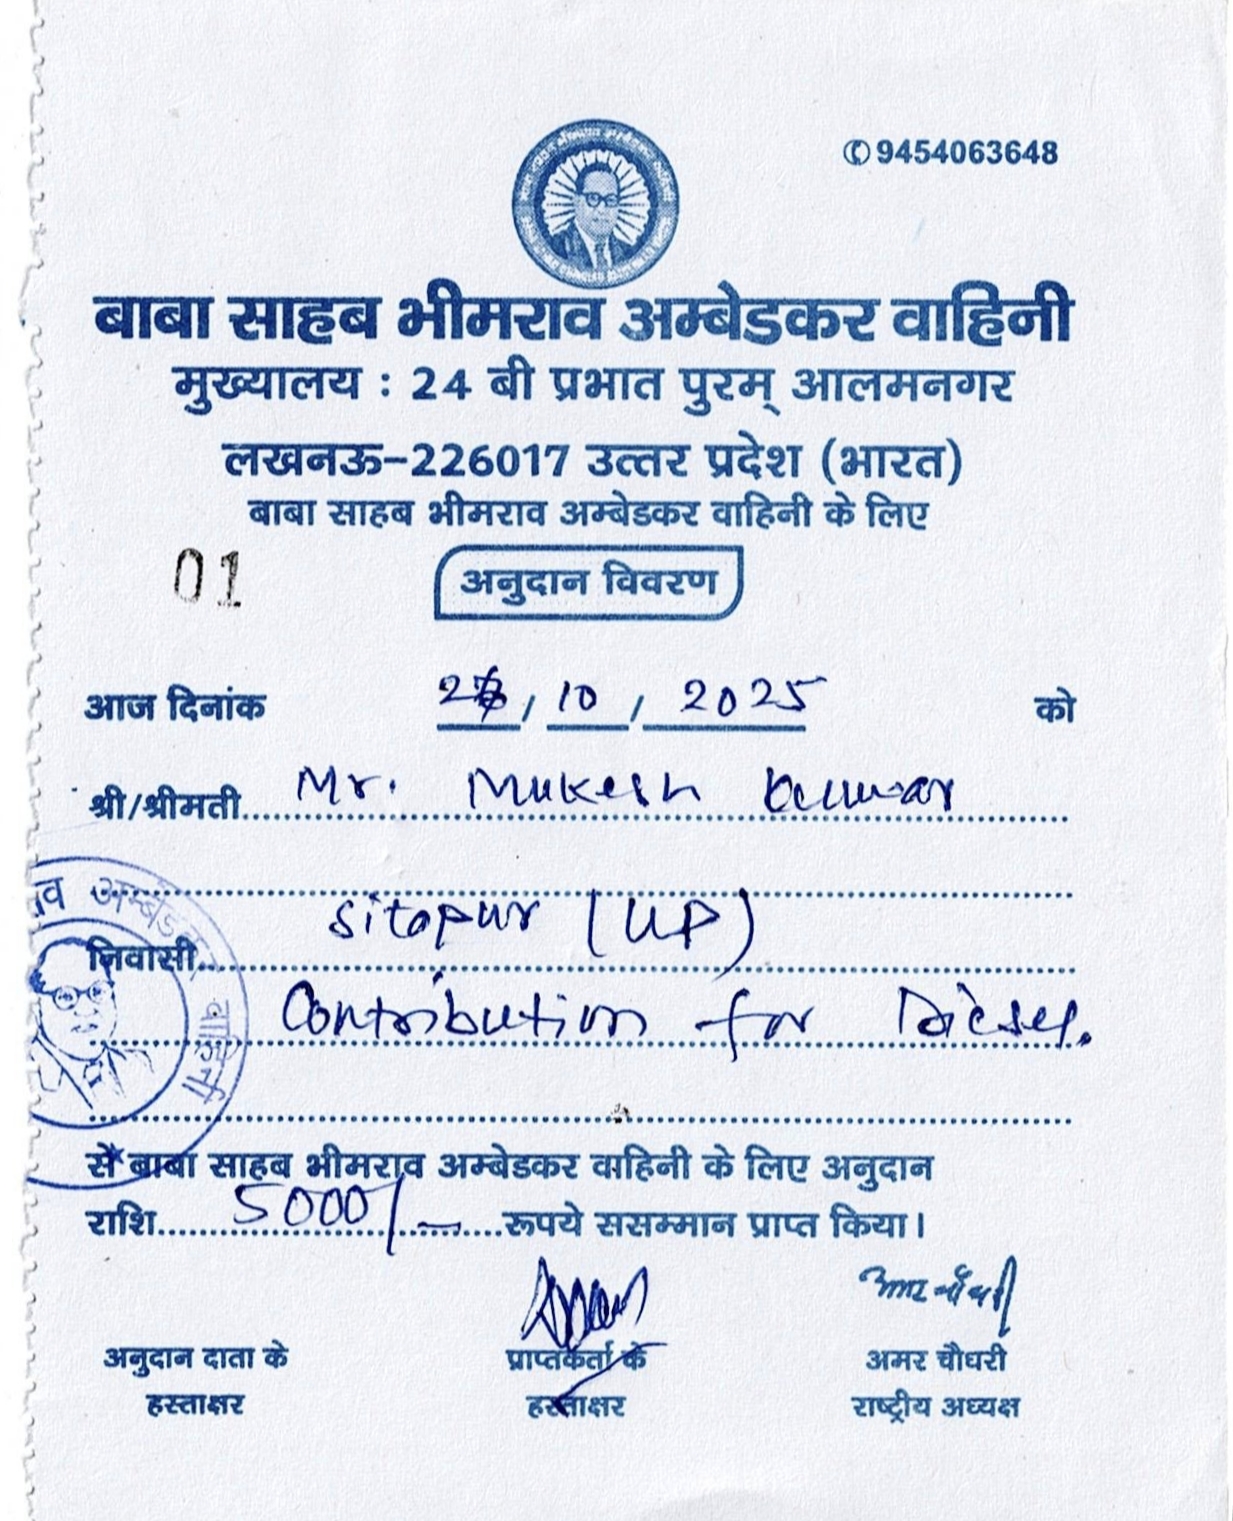 ✆ 9454063648
बाबा साहब भीमराव अम्बेडकर वाहिनी
मुख्यालय : 24 बी प्रभात पुरम् आलमनगर
लखनऊ-226017 उत्तर प्रदेश (भारत)
बाबा साहब भीमराव अम्बेडकर वाहिनी के लिए
01
अनुदान विवरण
आज दिनांक / 10 / 2025 को
श्री/श्रीमती Mr. Mukesh Kumar
निवासी Sitapur (UP)
Contribution for Diesel.
से बाबा साहब भीमराव अम्बेडकर वाहिनी के लिए अनुदान
राशि 5000/- रूपये ससम्मान प्राप्त किया।
अमर चौधरी
अनुदान दाता के प्राप्तकर्ता के अमर चौधरी
हस्ताक्षर हस्ताक्षर राष्ट्रीय अध्यक्ष
व अम्बेडकर वाहिनी